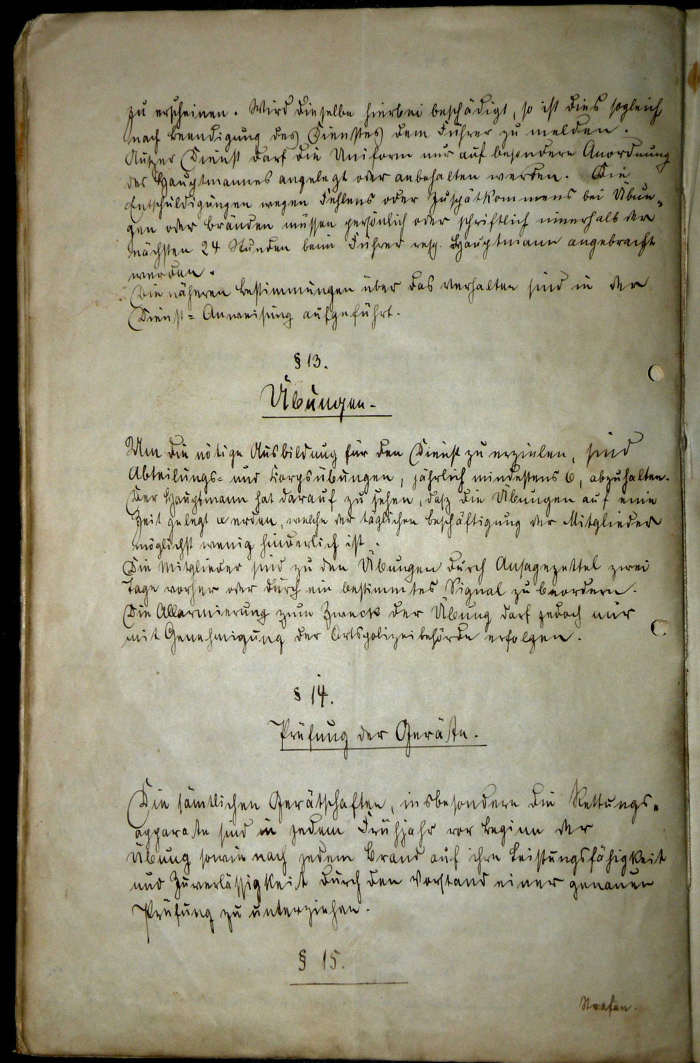 zu erscheinen. Wird dieselbe hierbei beschädigt, so ist dies sogleich
nach Beendigung des Dienstes dem Führer zu melden.
Außer Dienst darf die Uniform nur auf besondere Anordnung
des Hauptmannes angelegt oder anbehalten werden. Die
Entschuldigungen wegen Fehlens oder Zuspätkommens bei Übun=
gen oder Bränden müssen persönlich oder schriftlich innerhalb der
nächsten 24 Stunden beim Führer resp. Hauptmann angebracht
werden.
Die näheren Bestimmungen über das Verhalten sind in der
Dienst=Anweisung aufgeführt.
§ 13.
Übungen.
Um die nötige Ausbildung für den Dienst zu erzielen, sind
Abteilungs= und Korpsübungen, jährlich mindestens 6, abzuhalten.
Der Hauptmann hat darauf zu sehen, daß die Übungen auf eine
Zeit gelegt werden, welche der täglichen Beschäftigung der Mitglieder
möglichst wenig hinderlich ist.
Die Mitglieder sind zu den Übungen durch Ansagezettel zwei
Tage vorher oder durch ein bestimmtes Signal zu beordern.
Die Allarmierung zum Zweck der Übung darf jedoch nur
mit Genehmigung der Ortspolizeibehörde erfolgen.
§ 14.
Prüfung der Geräte.
Die sämtlichen Gerätschaften, insbesondere die Rettungs=
apparate sind in jedem Frühjahr vor Beginn der
Übung sowie nach jedem Brand auf ihre Leistungsfähigkeit
und Zuverlässigkeit durch den Vorstand einer genauen
Prüfung zu unterziehen.
§ 15.
Strafen.